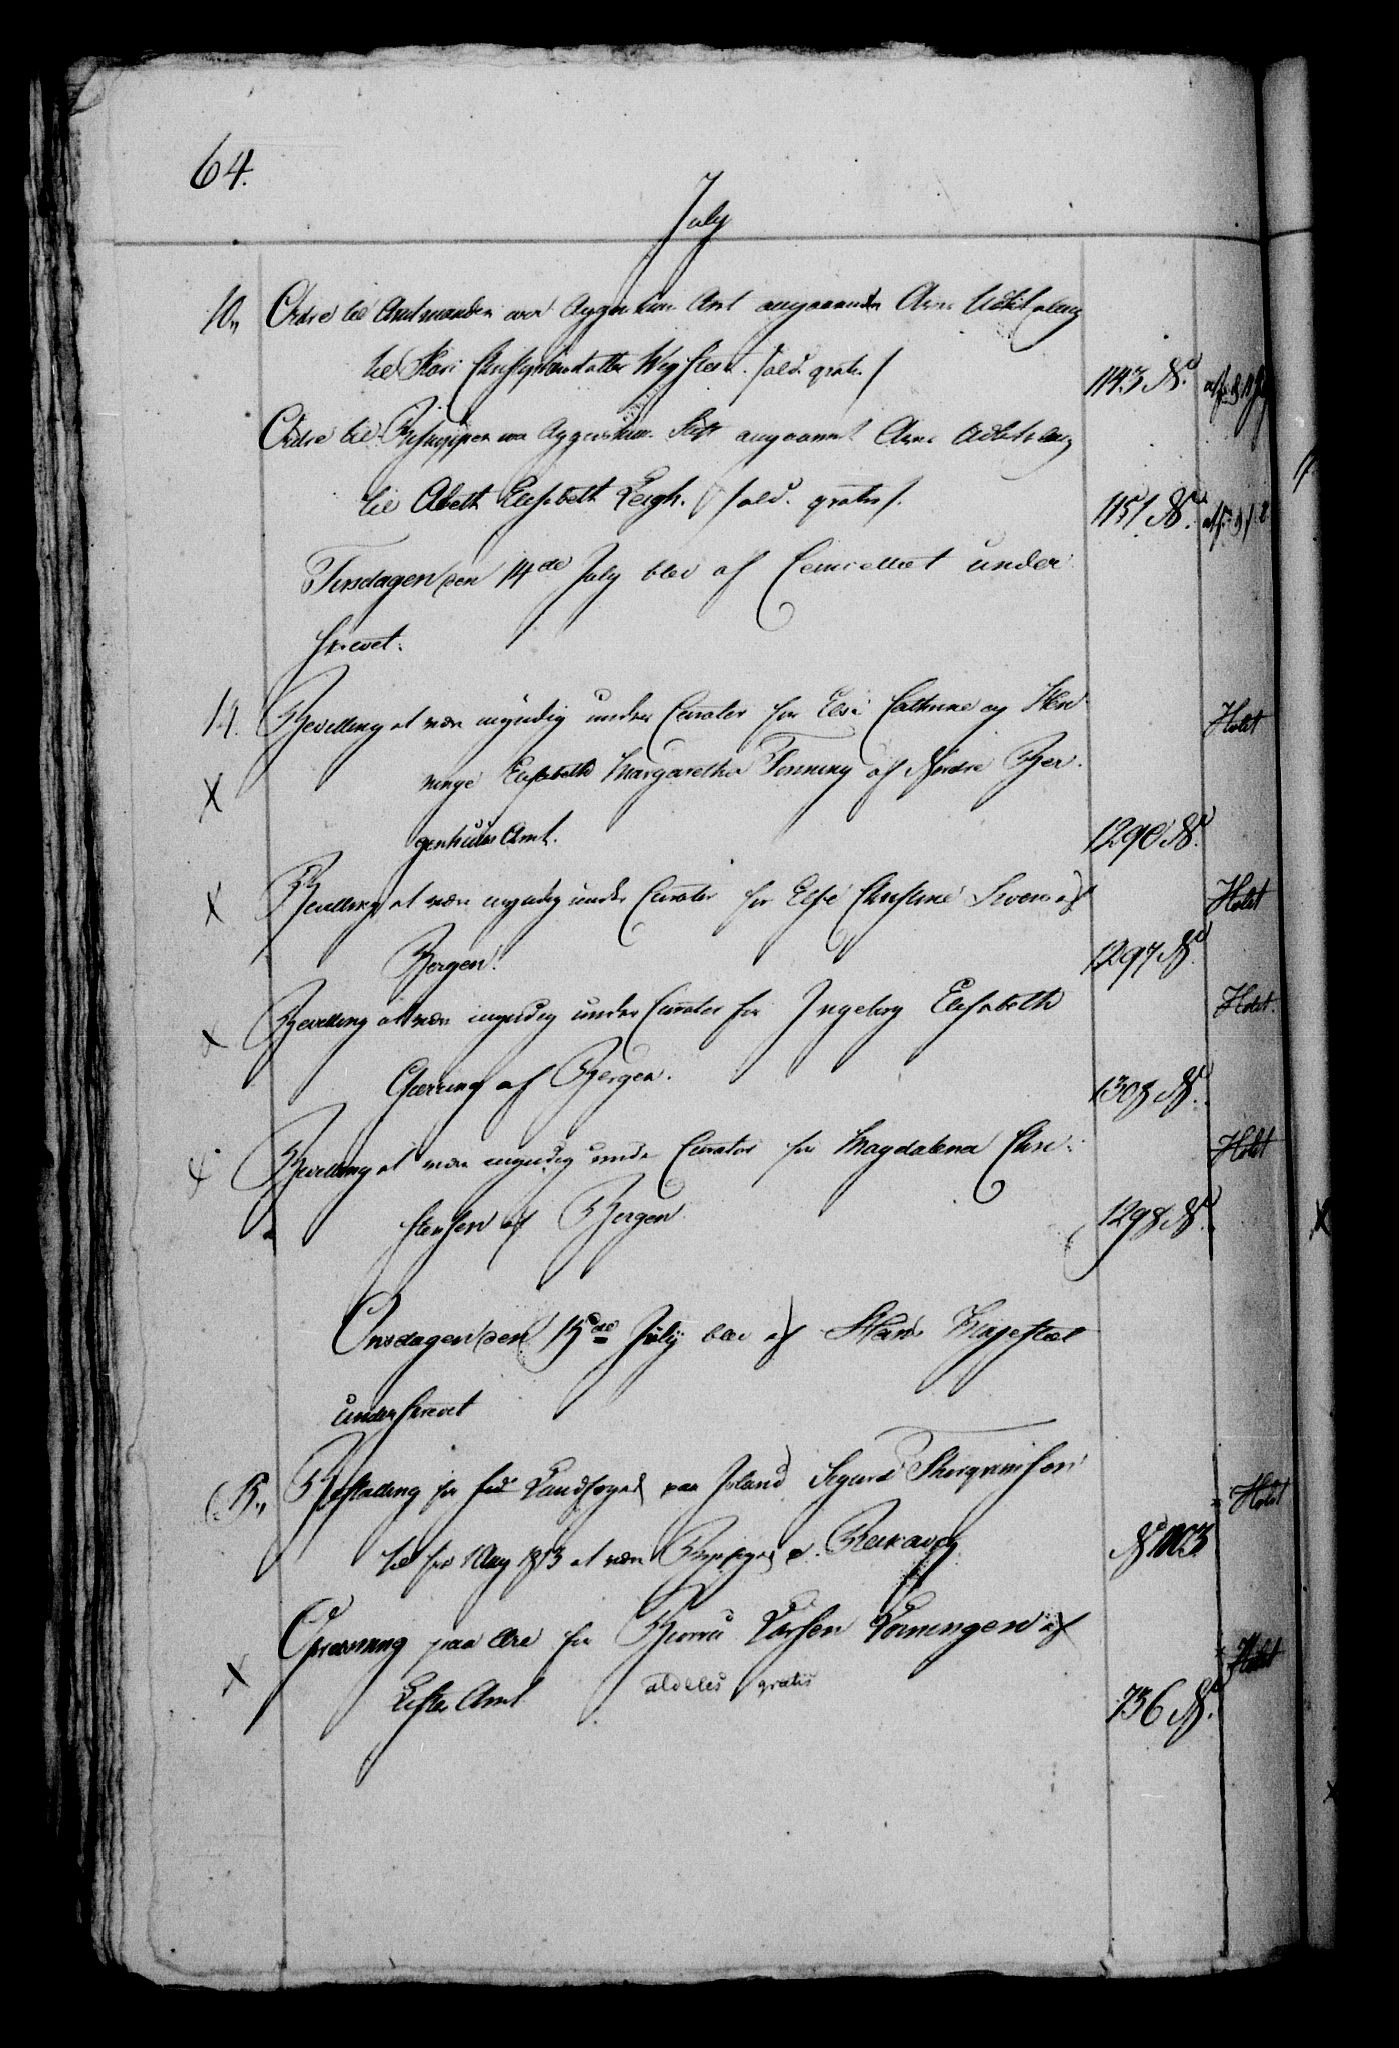 64.
July
10,, Ordre til Amtmanden over Aggershuus Amt angaaende Arve Udbetaling
til Kari Christophersdatter /ald. gratis/ 1143 N.
Ordre til Bispen over Aggershuus Stift angaaende Arve Udbetaling
til Abeth Elisabeth Leigh. /ald. gratis/. 1151 N.
Tirsdagen den 14de July blev af Cancelliet under
skrevet.
14. Bevilling at være myndig under Curator for Else Cathrine og Hen Holt
X ninge Elisabeth Margaretha Tonning af Nordre Ber
genhuus Amt. 1290 N.
X Bevilling at være myndig under Curator for Else Christine af Holt
Bergen. 1297 N.
X Bevilling at være myndig under Curator for Ingeborg Elisabeth Holt.
Gierning af Bergen. 1308 N.
X Bevilling at være myndig under Curator for Magdalena Chri- Holt
stensen af Bergen 1298 N.
Onsdagen den 15de July blev af Hans Majestæt
underskrevet
15,, Bestalling for Landfoged paa Island Sigurd Thorgrimsen Holt
til fra 1 Aug 1813 at være Byefoged i Reikavig N 1103
Opreisning paa Ære for Larsen af Holt
X Lister Amt aldeles gratis 736 N.